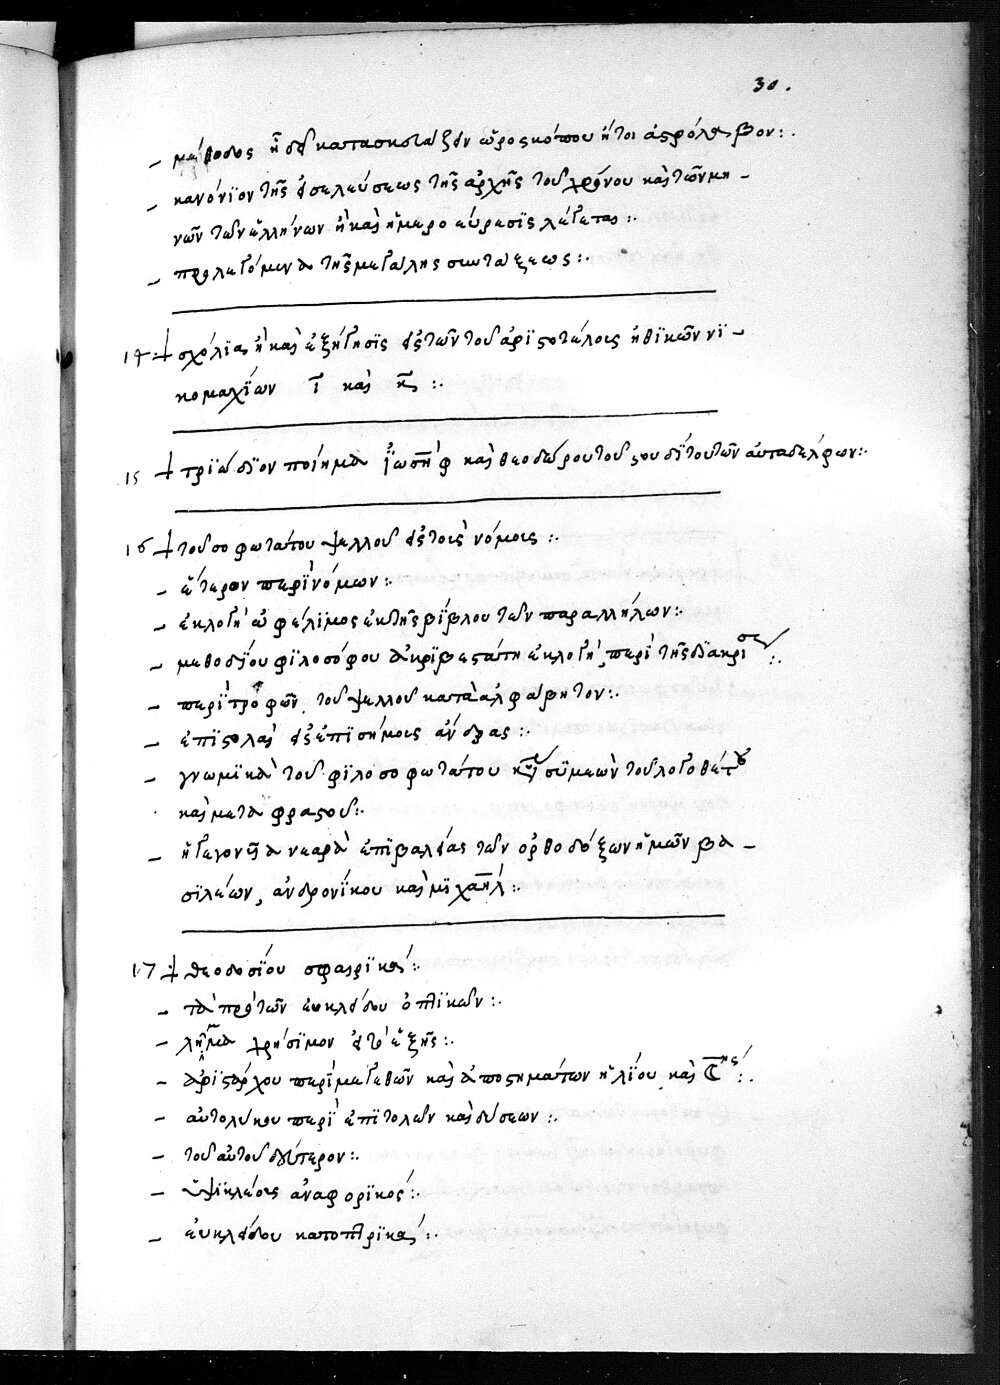 30.
– μέθοδος ἢ δεῖ κατασκευάζειν ὡροσκόπου ἤτοι ἀστρόλαβον:.
– κανόνιον τῆς εἰσελεύσεως τῆς ἀρχῆς τοῦ χρόνου καὶ τῶν μη –
νῶν τῶν ἑλλήνων ἢ καὶ ἡμεροεύρεσϊς λέγεται:.
– προλεγόμενα τῆς μεγάλης συντάξεως:.
14 + σχόλϊα ἢ καὶ ἐξήγησϊς εἰς τῶν τοῦ ἀρϊστοτέλους ἠθϊκῶν νϊ –
κομαχϊων ῑ καὶ κ̄:.
15 + τρϊώδϊον ποίημα ϊωσὴφ καὶ θεοδώρου τοῦ στουδίτου τῶν αὐταδέλφων:.
16 + τοῦ σοφωτάτου ψελλοῦ εἰς τοὺς νόμους:.
– ἕτερον περὶ νόμων:.
– ἐκλογὴ ὠφέλϊμος ἐκ τῆς βϊβλου τῶν παραλλήλων:.
– μεθοδϊου φϊλοσόφου ἀκρϊβεστάτη ἐκλογὴ, περὶ τῆς δϊακρίσεως:.
– περὶ τροφῶν, τοῦ ψελλοῦ κατὰ ἀλφάβητον:.
– ἐπϊστολαὶ εἰς ἐπϊσήμους ἄνδρας:.
– γνωμϊκὰ τοῦ φϊλοσοφωτάτου κυροῦ συμεὼν τοῦ λογοθέτου
καὶ μεταφραστοῦ:.
– ἡ γεγονυῖα νεαρὰ ἐπϊβαλείας τῶν ὀρθοδόξων ἡμῶν βα –
σϊλέων, ἀνδρονίκου καὶ μϊχαήλ:.
17 + θεοδοσϊου σφαιρϊκά:.
– τὰ πρὸ τῶν εὐκλείδου ὀπτϊκῶν:.
– λῆμμα χρήσϊμον εἰς τὸ ἑξῆς:.
– ἀρϊστάρχου περὶ μεγεθῶν καὶ ἀποστημάτων ἡλϊου καὶ ☾ης:.
– αὐτολύκου περὶ ἐπϊτολῶν καὶ δύσεων:.
– τοῦ αὐτοῦ δεύτερον:.
– ὑψϊκλέους ἀναφορϊκός:.
– εὐκλείδου κατοπτρϊκά:.